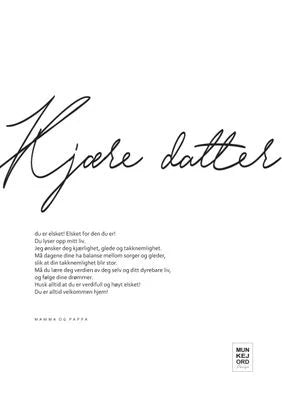 Kjære datter
du er elsket! Elsket for den du er!
Du lyser opp mitt liv.
Jeg ønsker deg kjærlighet, glede og takknemlighet.
Må dagene dine ha balanse mellom sorger og gleder,
slik at din takknemlighet blir stor.
Må du lære deg verdien av deg selv og ditt dyrebare liv,
og følge dine drømmer.
Husk alltid at du er verdifull og høyt elsket!
Du er alltid velkommen hjem!
MAMMA OG PAPPA
MUN
KEJ
ORD
Design